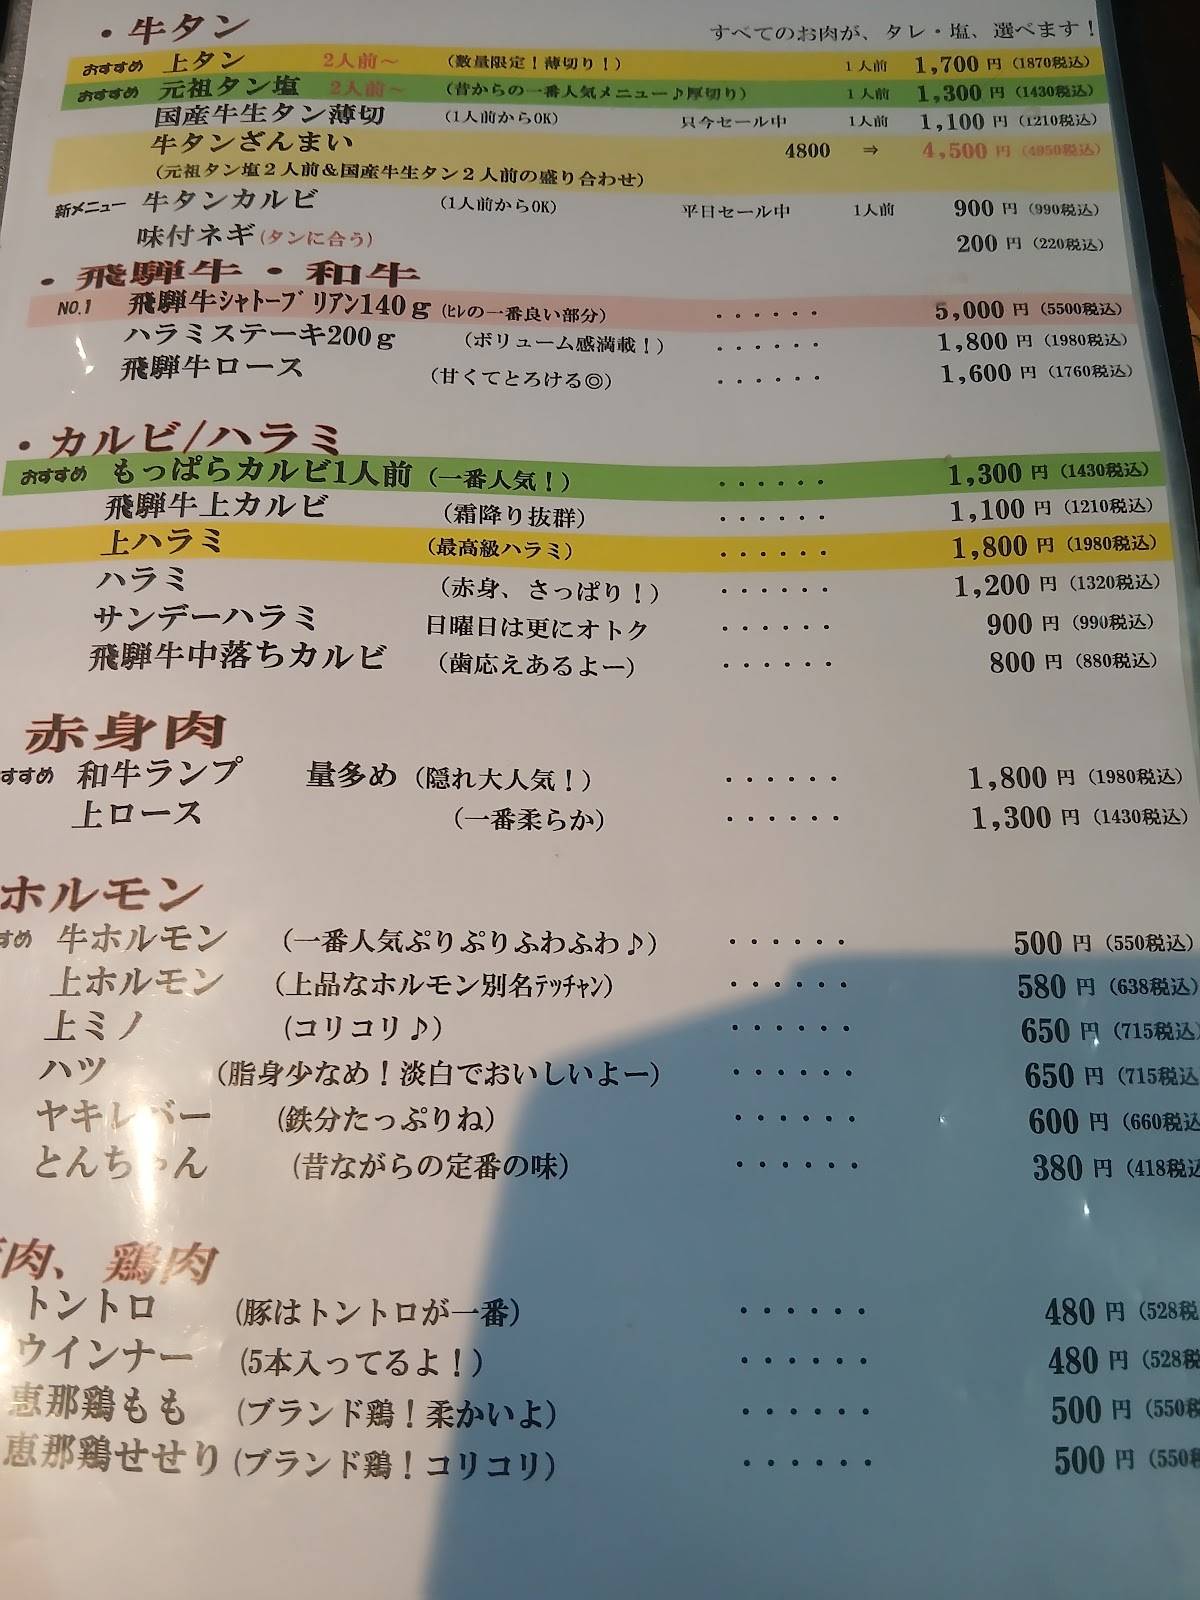 ・牛タン
すべてのお肉が、タレ・塩、選べます！
おすすめ 上タン 2人前～ (数量限定！薄切り！) 1人前 1,700円(1870税込)
おすすめ 元祖タン塩 2人前～ (昔からの一番人気メニュー♪厚切り) 1人前 1,300円(1430税込)
国産牛生タン薄切 (1人前からOK) 只今セール中 1人前 1,100円(1210税込)
牛タンざんまい 4800 ⇒ 4,500円(4950税込)
(元祖タン塩２人前&国産牛生タン２人前の盛り合わせ)
新メニュー 牛タンカルビ (1人前からOK) 平日セール中 1人前 900円(990税込)
味付ネギ(タンに合う) 200円(220税込)
・飛騨牛・和牛
NO.1 飛騨牛ｼｬﾄｰﾌﾞﾘｱﾝ140ｇ(ﾋﾚの一番良い部分) ・・・・・・ 5,000円(5500税込)
ハラミステーキ200ｇ (ボリューム感満載！) ・・・・・・ 1,800円(1980税込)
飛騨牛ロース (甘くてとろける◎) ・・・・・・ 1,600円(1760税込)
・カルビ/ハラミ
おすすめ もっぱらカルビ1人前 (一番人気！) ・・・・・・ 1,300円(1430税込)
飛騨牛上カルビ (霜降り抜群) ・・・・・・ 1,100円(1210税込)
上ハラミ (最高級ハラミ) ・・・・・・ 1,800円(1980税込)
ハラミ (赤身、さっぱり！) ・・・・・・ 1,200円(1320税込)
サンデーハラミ 日曜日は更にオトク ・・・・・・ 900円(990税込)
飛騨牛中落ちカルビ (歯応えあるよー) ・・・・・・ 800円(880税込)
赤身肉
すすめ 和牛ランプ 量多め (隠れ大人気！) ・・・・・・ 1,800円(1980税込)
上ロース (一番柔らか) ・・・・・・ 1,300円(1430税込)
ホルモン
すめ 牛ホルモン (一番人気ぷりぷりふわふわ♪) ・・・・・・ 500円(550税込)
上ホルモン (上品なホルモン別名ﾃｯﾁｬﾝ) ・・・・・・ 580円(638税込)
上ミノ (コリコリ♪) ・・・・・・ 650円(715税込
ハツ (脂身少なめ！淡白でおいしいよー) ・・・・・・ 650円(715税込
ヤキレバー (鉄分たっぷりね) ・・・・・・ 600円(660税込
とんちゃん (昔ながらの定番の味) ・・・・・・ 380円(418税込
肉、鶏肉
トントロ (豚はトントロが一番) ・・・・・・ 480円(528税
ウインナー (5本入ってるよ！) ・・・・・・ 480円(528税
恵那鶏もも (ブランド鶏！柔かいよ) ・・・・・・ 500円(550税
恵那鶏せせり (ブランド鶏！コリコリ) ・・・・・・ 500円(550税